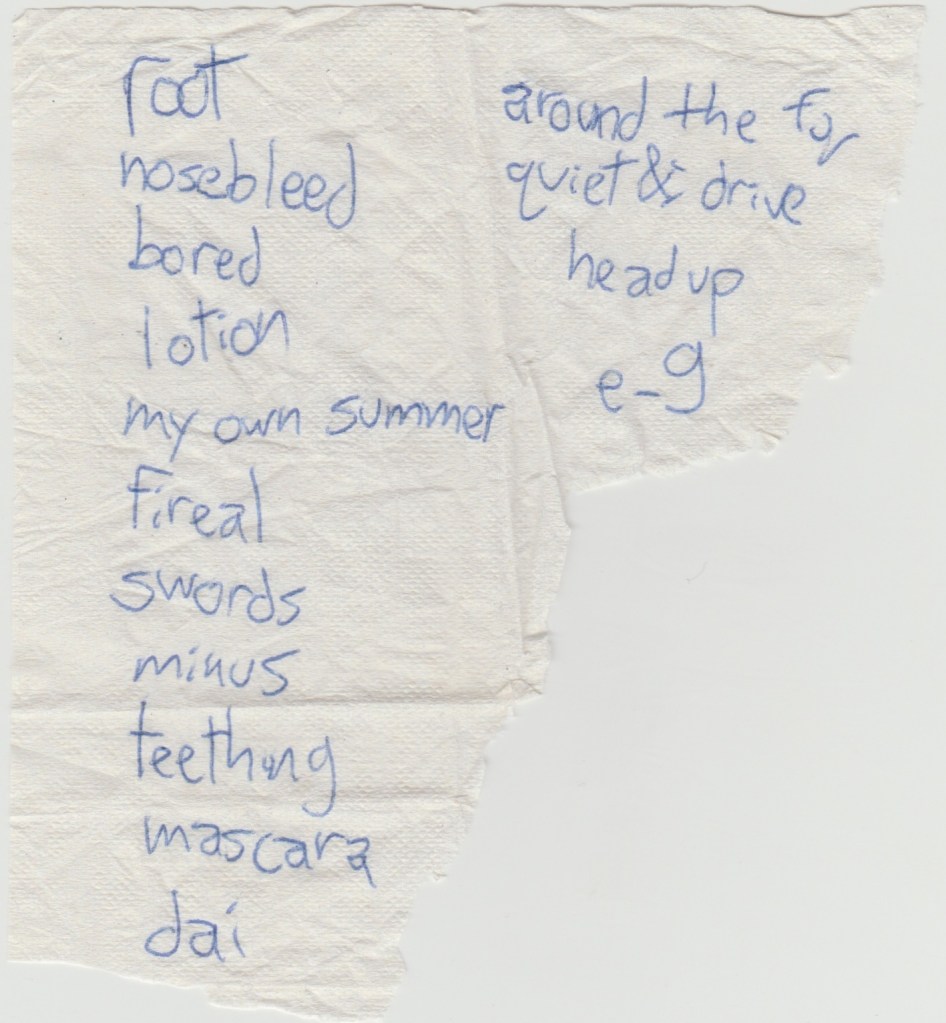 root
nosebleed
bored
lotion
my own summer
fireal
swords
minus
teething
mascara
dai
around the fur
quiet & drive
head up
e-9